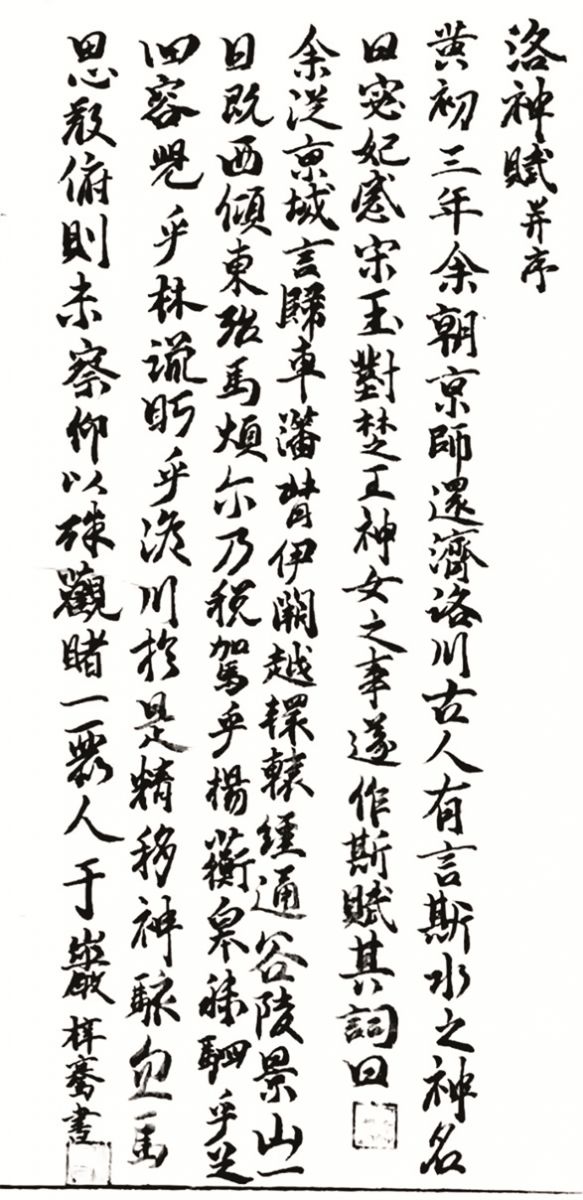 洛神賦并序
黃初三年余朝京師還濟洛川古人有言斯水之神名
曰宓妃感宋玉對楚王神女之事遂作斯賦其詞曰
余從京域言歸車藩背伊闕越轘轅經通谷陵景山
日既西傾東殆馬煩尒乃税駕乎楊蘅皋秣駟乎芝
田容與乎林流眄乎洛川於是精移神駭忽焉
思散俯則未察仰以殊觀睹一麗人于巖梓騫書